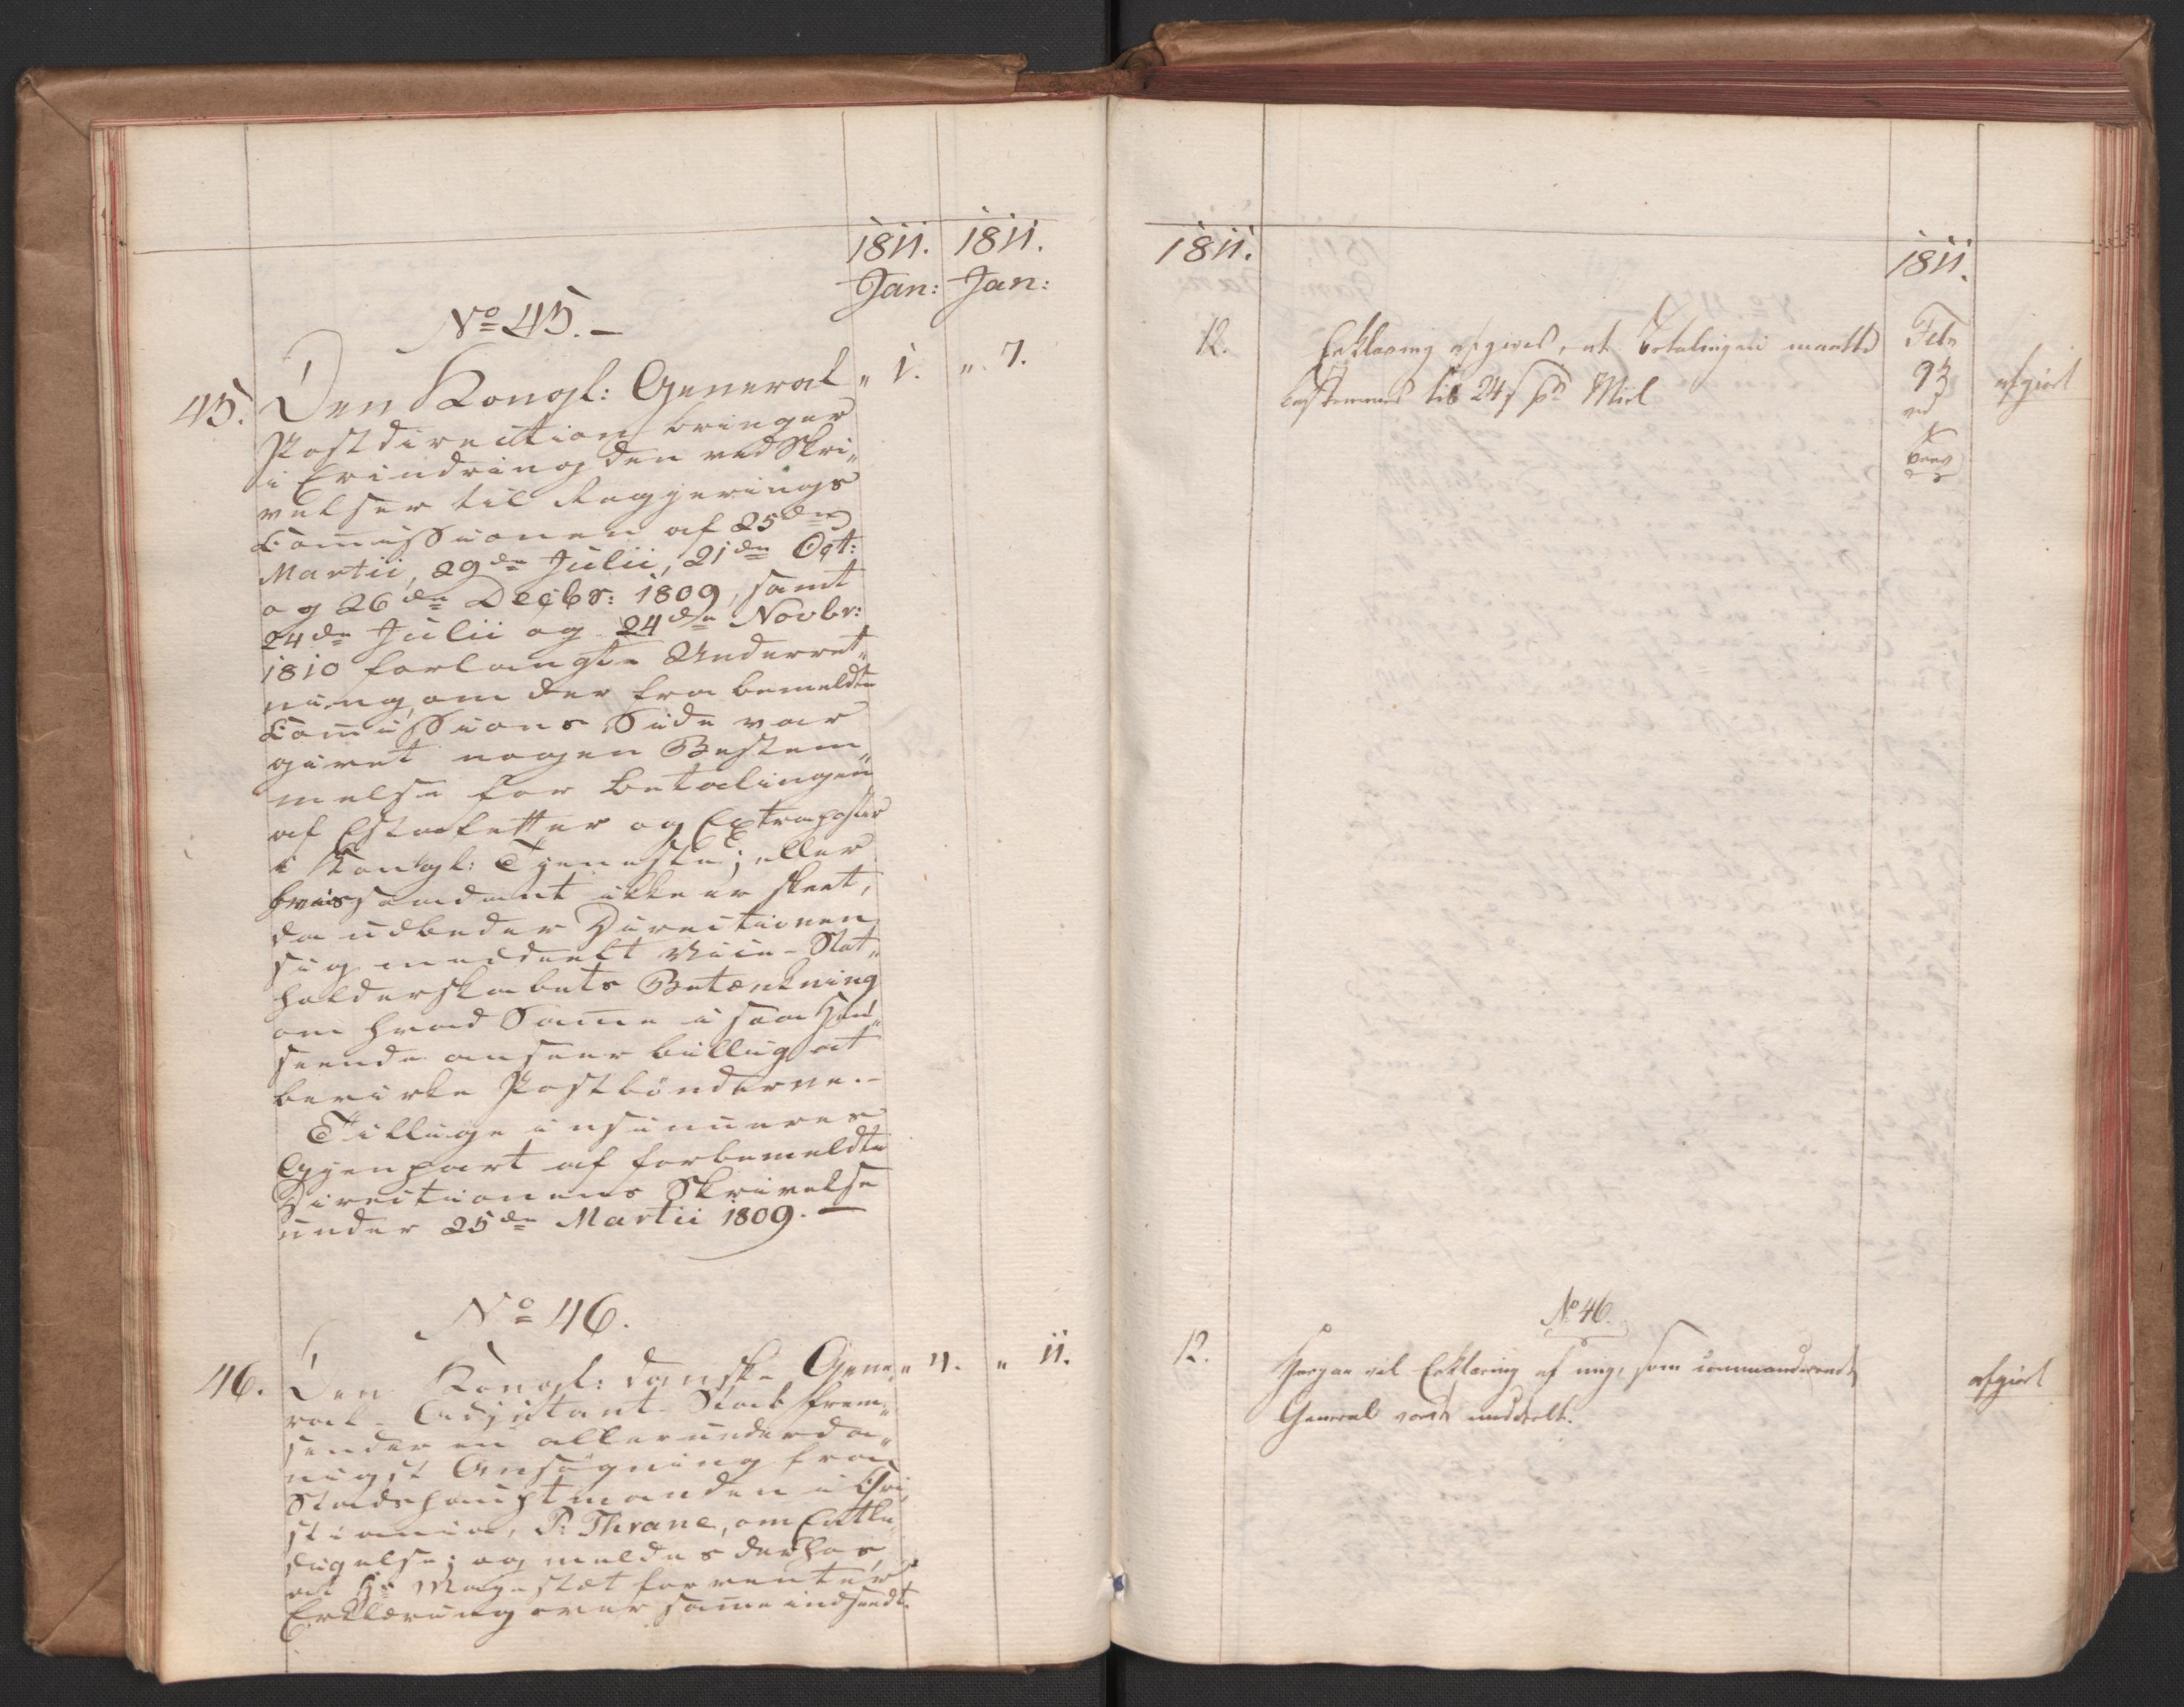 1811. 1811.
Jan: Jan:
No 45. –
45. Den Kongl: General „ 1. „ 7.
Postdirection bringer
i Erindring den ved Skri„
velser til Regjerings
Comissionen af 25de
Martii, 29de Julii, 21de Oct:
og 26de Decbr: 1809, samt
24de Julii og 24de Novbr:
1810 forlangte Underret„
ning, om der fra bemeldte
Comissions Side var
givet nogen Bestem„
melse for Betalingen
af Estafetter og Extraposter
i Kongl: Tjeneste; eller
hvis saadant ikke er skeet,
da udbeder Directionen
sig meddeelt Vice-Stat„
holderskabets Betænkning
om hvad Same i saa Hen„
seende anseer billig at
bevirke Postbönderne. –
Tillige insinueres
Gjenpart af forbemeldte
Directionens Skrivelse
under 25de Martii 1809. –
No 46.
46. Den Kongl: danske Gene„ „ 4. „ 11.
ral-Adjutant-Stab frem„
sender en allerunderda„
nigst Ansögning fra
Stadshauptmanden i Chri„
stiania, P: Thrane, om Entle„
digelse; og meldes derhos,
at Hs Majestæt forventer
Erklæring over same indsendt.
1811. 1811.
12. Erklæring afgives, at Betalingen maatte
bestemmes til 24 s pr Miil
Febr
93
ved
Brev
afgiort
No 46.
12. Herpaa vil Erklæring af mig, som commanderende
General vorde meddeelt.
afgiort